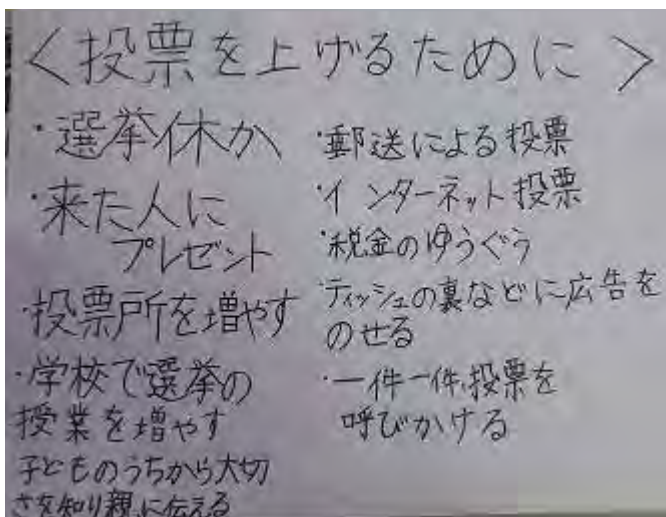 ＜投票を上げるために＞
・選挙休か
・来た人に
プレゼント
・投票所を増やす
・学校で選挙の
授業を増やす
子どものうちから大切
さを知り親に伝える
・郵送による投票
・インターネット投票
・税金のゆうぐう
・ティッシュの裏などに広告を
のせる
・一件一件、投票を
呼びかける